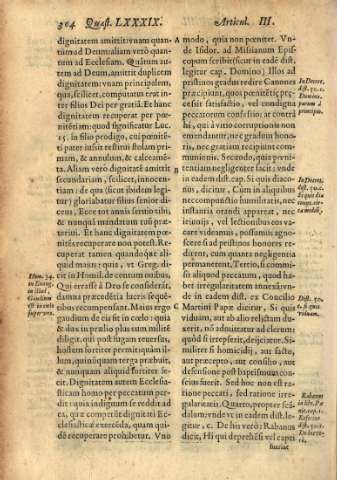 304 Quæst. LXXXIX. Articul. III.
dignitatem amittit: vnam quan-
tum ad Deum: aliam verò quan-
tum ad Ecclesiam. Quātum au-
tem ad Deum, amittit duplicem
dignitatem: vnam principalem,
qua, scilicet, computatus erat in-
ter filios Dei per gratiā. Et hanc
dignitatem recuperat per pœ-
nitētiam: quod significatur Luc.
15. in filio prodigo, cui pœnitē-
ti pater iussit restitui stolam pri-
mam, & annulum, & calceamē-
ta. Aliam verò dignitatē amittit
secundariam, scilicet, innocen-
tiam: de qua (sicut ibidem legi-
tur) gloriabatur filius senior di-
cens, Ecce tot annis seruio tibi,
& nunquā mandatum tuū præ-
teriui. Et hanc dignitatem pœ-
nitēs recuperare non potest. Re-
cuperat tamen quandoq́ue ali-
quid maius: quia, vt Greg. di-
cit in Homil. de centum ouibus,
Qui errasse à Deo se considerāt,
damna præcedētia lucris seque-
tibus recompensant. Maius ergo
gaudium de eis fit in cœlo: quia
& dux in prælio plus eum milite
diligit, qui post fugam reuersus,
hostium fortiter premit: quàm il-
lum, qui nūquam terga præbuit,
& nunquam aliquid fortiter fe-
cit. Dignitatem autem Eccle-
siasticam homo per peccatum per-
dit: qui indignum se reddit ad
ea, quæ competūt dignitati Ec-
clesiasticæ exercēda, quam qui-
dē recuperare prohibetur. Vno
Hom. 34.
in Euang.
in illud,
Gaudium
est in cœlo
super vno.
modo, quia non pœnitet. Vn-
de Isidor. ad Misianum Epis-
copum scribit (sicut in eadē dist.
legitur cap. Domino) Illos ad
pristinos gradus redire Canones
præcipiunt, quos pœnitētiæ præ-
cessit satisfactio, vel condigna
peccatorum confessio: at contrà
hi, qui à vitio corruptionis non
emendantur, nec gradum hono-
ris, nec gratiam recipiunt com-
munionis. Secundo, quia pœni-
tentiam negligenter facit: vnde
in eadem dist. cap. Si quis diaco-
nus, dicitur, Cum in aliquibus
nec compunctio humilitatis, nec
instantia orandi apparet, nec
ieiunijs, vel lectionibus eos va-
care videamus, possumus agno-
scere si ad pristinos honores re-
dirent, cum quanta negligentia
permanerent. Tertio, si commi-
sit aliquod peccatum, quod ha-
bet irregularitatem annexam:
vnde in eadem dist. ex Concilio
Martini Papæ dicitur, Si quis
viduam, aut ab alio relictam du-
xerit, nō admittatur ad clerum:
quòd si irrepserit, deijciatur. Si-
militer si homicidij, aut facto,
aut præcepto, aut consilio, aut
defensione post baptismum con-
scius fuerit. Sed hoc non est ra-
tione peccati, sed ratione irre-
gularitatis. Quarto, propter scā-
dalum: vnde vt in eadem dist. le-
gitur, c. De his verò: Rabanus
dicit, Hi qui deprehēsi vel capti
fuerint
A
B
C
In Decret.
dist. 50. c.
Domino.
In Decret.
dist. 50. c.
Dist. 50.
Rabanus